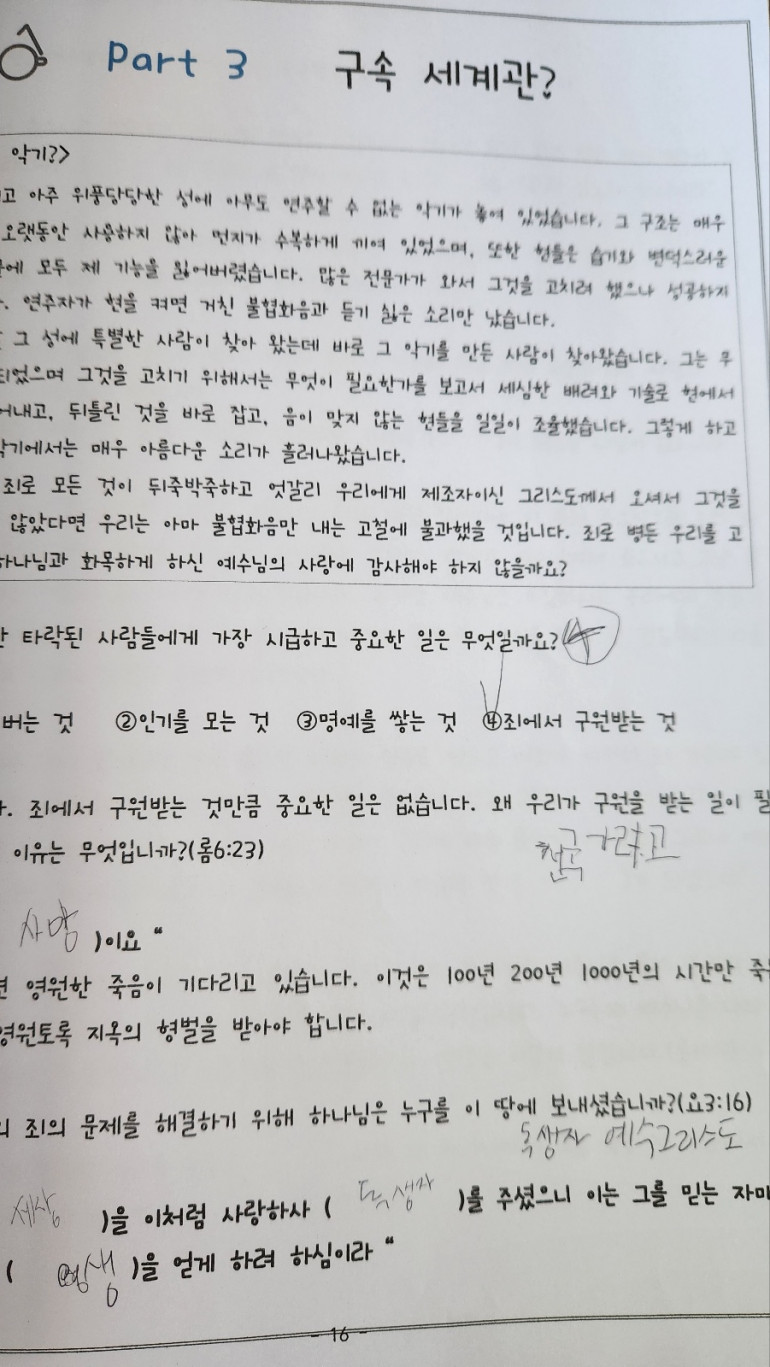 Part 3 구속 세계관?
악기?>
고 아주 위풍당당한 성에 아무도 연주할 수 없는 악기가 놓여 있었습니다. 그 구조는 매우
오랫동안 사용하지 않아 먼지가 수북하게 끼여 있었으며, 또한 현들은 습기와 변덕스러운
에 모두 제 기능을 잃어버렸습니다. 많은 전문가가 와서 그것을 고치려 했으나 성공하지
. 연주자가 현을 켜면 거친 불협화음과 듣기 싫은 소리만 났습니다.
그 성에 특별한 사람이 찾아 왔는데 바로 그 악기를 만든 사람이 찾아왔습니다. 그는 후
되었으며 그것을 고치기 위해서는 무엇이 필요한가를 보고서 세심한 배려와 기술로 현에서
어내고, 뒤틀린 것을 바로 잡고, 음이 맞지 않는 현들을 일일이 조율했습니다. 그렇게 하고
악기에서는 매우 아름다운 소리가 흘러나왔습니다.
죄로 모든 것이 뒤죽박죽하고 엇갈리 우리에게 제조자이신 그리스도께서 오셔서 그것을
않았다면 우리는 아마 불협화음만 내는 고철에 불과했을 것입니다. 죄로 병든 우리를 고
하나님과 화목하게 하신 예수님의 사랑에 감사해야 하지 않을까요?
타락된 사람들에게 가장 시급하고 중요한 일은 무엇일까요? 4
버는 것 ②인기를 모는 것 ③명예를 쌓는 것 ④죄에서 구원받는 것
. 죄에서 구원받는 것만큼 중요한 일은 없습니다. 왜 우리가 구원을 받는 일이 필
이유는 무엇입니까?(롬6:23) 천국 가려고
사망 )이요 "
영원한 죽음이 기다리고 있습니다. 이것은 100년 200년 1000년의 시간만 죽
영원토록 지옥의 형벌을 받아야 합니다.
의 죄의 문제를 해결하기 위해 하나님은 누구를 이 땅에 보내셨습니까?(요3:16)
독생자 예수그리스도
세상 )을 이처럼 사랑하사 ( 독생자 )를 주셨으니 이는 그를 믿는 자마
( 영생 )을 얻게 하려 하심이라 "
- 16 -